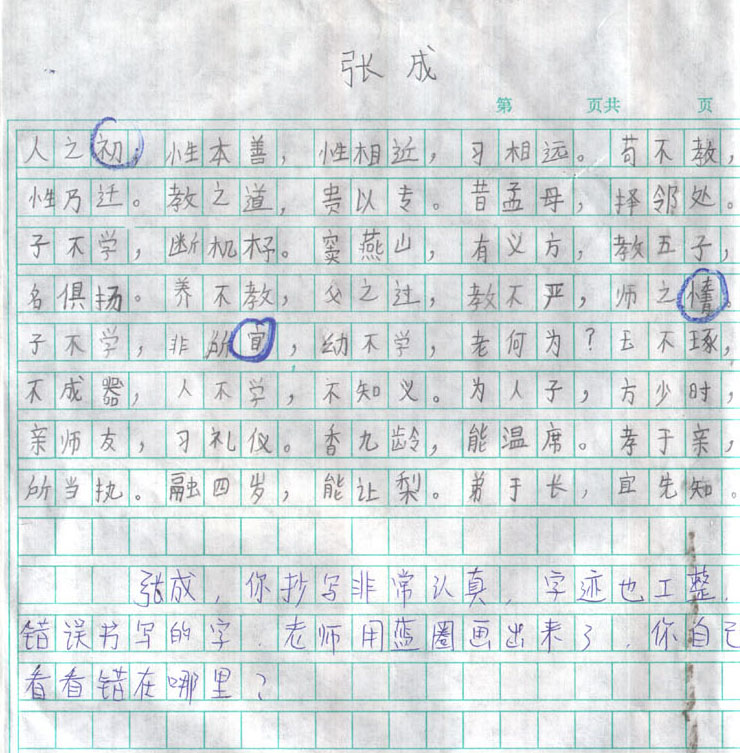 张成
第 页共 页
人之初,性本善,性相近,习相远。苟不教,
性乃迁。教之道,贵以专。昔孟母,择邻处。
子不学,断机杼。窦燕山,有义方,教五子,
名俱扬。养不教,父之过,教不严,师之情。
子不学,非所宜,幼不学,老何为?玉不琢,
不成器,人不学,不知义。为人子,方少时,
亲师友,习礼仪。香九龄,能温席。孝于亲,
所当执。融四岁,能让梨。弟于长,宜先知。
张成,你抄写非常认真,字迹也工整,
错误书写的字,老师用蓝圈画出来了,你自己
看看错在哪里?